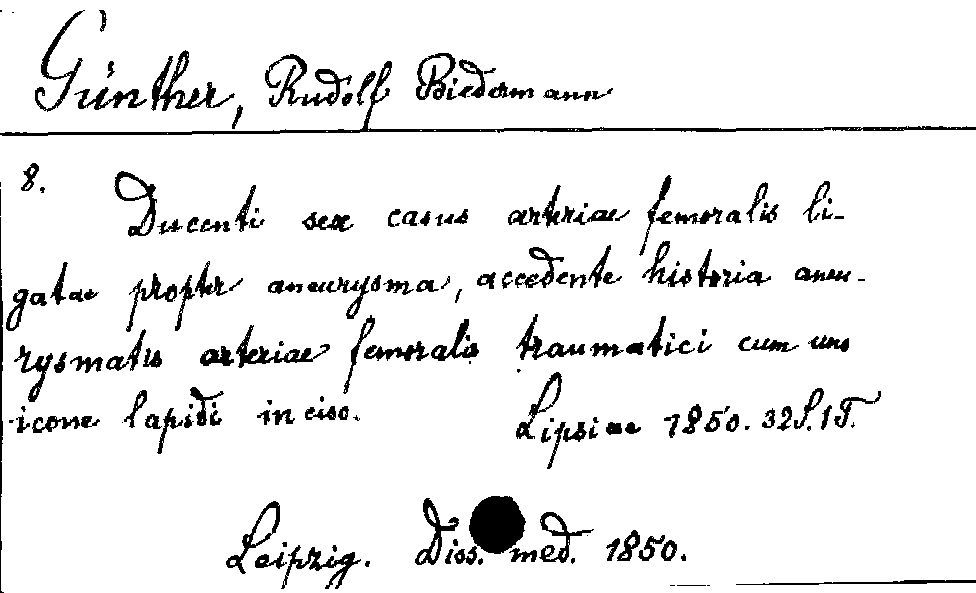 Günther, Rudolf Biedermann
8.
Ducenti sex casus arteriae femoralis li-
gatae propter aneurysma, accedente historia aneu-
rysmatis arteriae femoralis traumatici cum uno
icone lapidi inciso. Lipsiae 1850. 32 S. 1 T.
Leipzig. Diss. med. 1850.